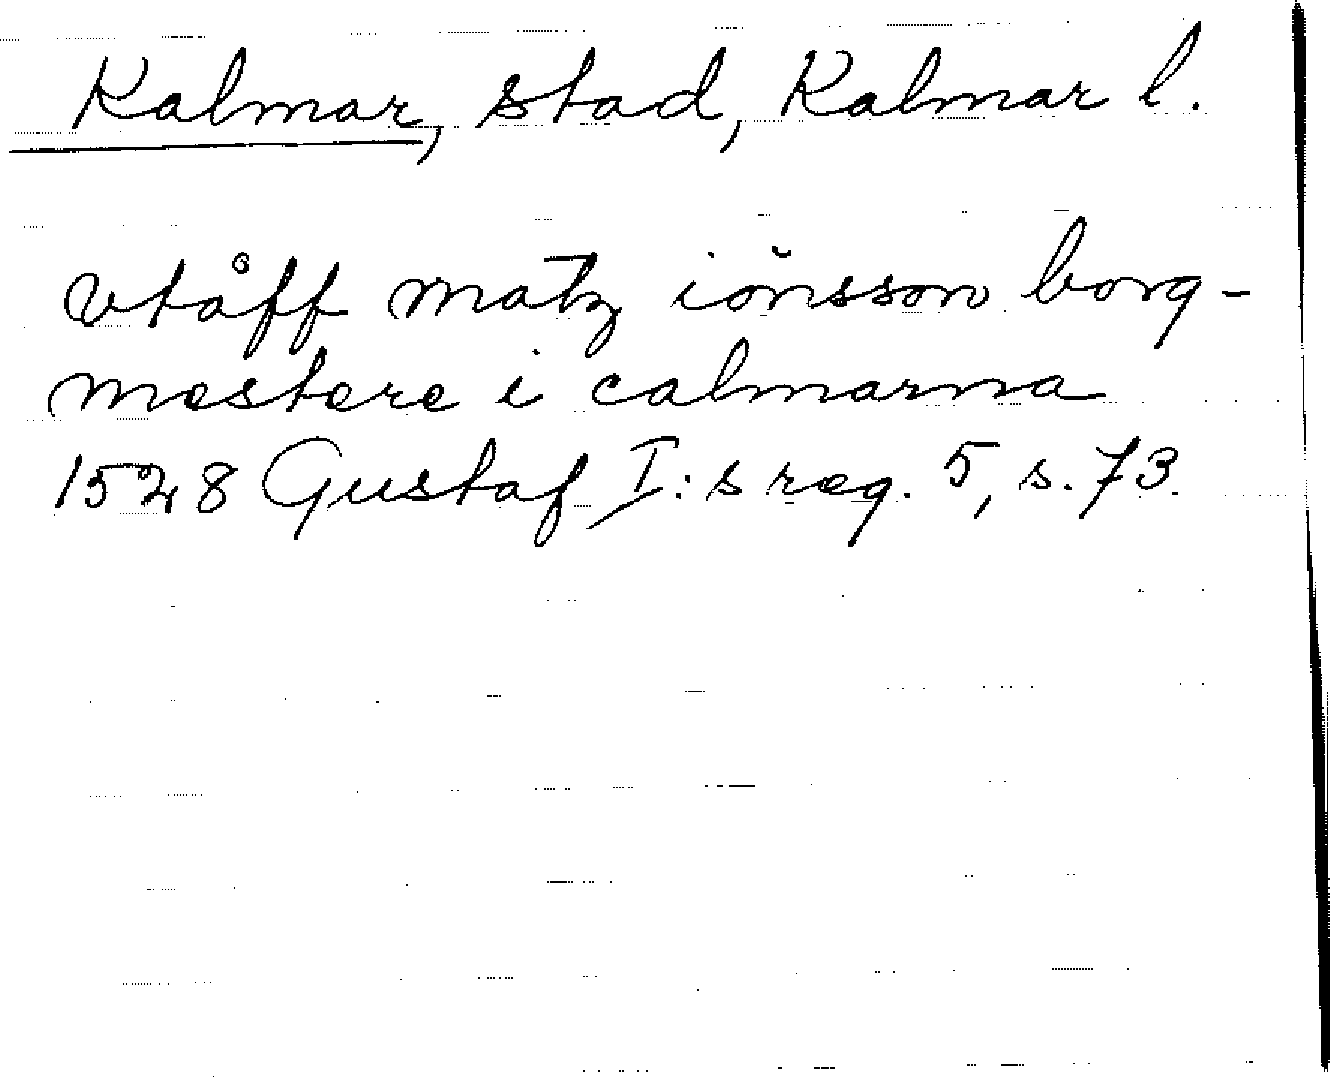 Kalmar, stad, Kalmar l.
vtåff matz iönsson borg-
mestere i calmarna
1528 Gustaf I:s reg. 5, s. 73.